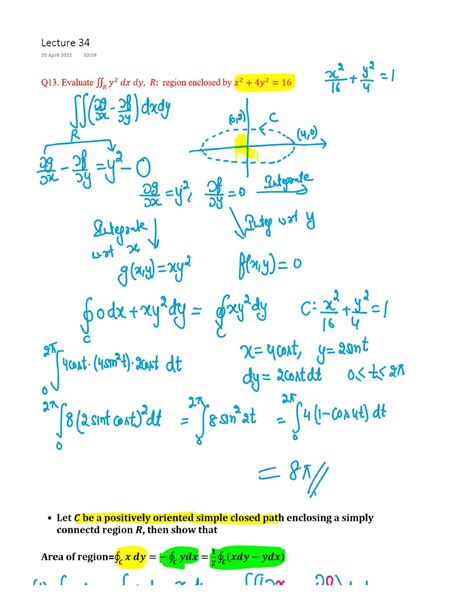 Lecture 34
20 April 2022 10:59
Q13. Evaluate ∬_R y² dx dy, R: region enclosed by x² + 4y² = 16
x²/16 + y²/4 = 1
∬_R (∂g/∂x − ∂f/∂y) dxdy
(0,2) C
(4,0)
∂g/∂x − ∂f/∂y = y² − 0
∂g/∂x = y², ∂f/∂y = 0 Integrate
Integrate wrt x
Integ wrt y
g(x,y) = xy² f(x,y) = 0
∮_C 0dx + xy²dy = ∮_C xy²dy C: x²/16 + y²/4 = 1
x = 4cost, y = 2sint
∫_0^2π 4cost·(4sin²t)·2cost dt
dy = 2costdt 0≤t≤2π
∫_0^2π 8(2sintcost)²dt = ∫_0^2π 8sin²2t = ∫_0^2π 4(1−cos4t)dt
= 8π//
• Let C be a positively oriented simple closed path enclosing a simply
connectd region R, then show that
Area of region=∮_C x dy = −∮_C ydx = 1/2 ∮_C (xdy − ydx)